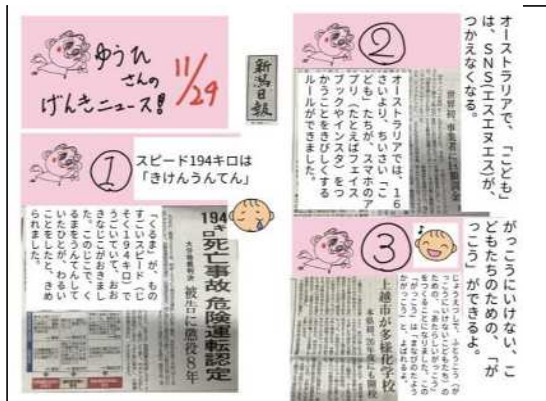 ゆうひ
さんの
げんきニュース!
11/29
新潟日報
①
スピード194キロは
「きけんうんてん」
194キロ死亡事故 危険運転認定
大分地裁判決
被告に懲役8年
「くるま」が、もの
すごいスピード(じ
そく194キロ)で
うごいていて、おお
きなじこがおきまし
た。このじこで、く
るまをうんてんして
いたひとが、わるい
ことをしたと、きめ
られました。
②
オーストラリアで、「こども」
は、SNS(エスエヌエス)が、
つかえなくなる。
世界初、事業者に罰金
オーストラリアでは、16
さいより、ちいさい「こ
ども」たちが、スマホのア
プリ(たとえばフェイス
ブックやインスタ)をつ
かうことをきびしくする
ルールができました。
③
がっこうにいけない、こ
どもたちのための、「が
っこう」ができるよ。
上越市が多様化学校
本格初、26年度にも開校
じょうえつしで、ふとうこう(が
っこうにいけないこどもたち)の
ための、「あたらしいがっこう」
をつくることになりました。この
「がっこう」は「まなびのたよう
かがっこう」と、よばれるよ。